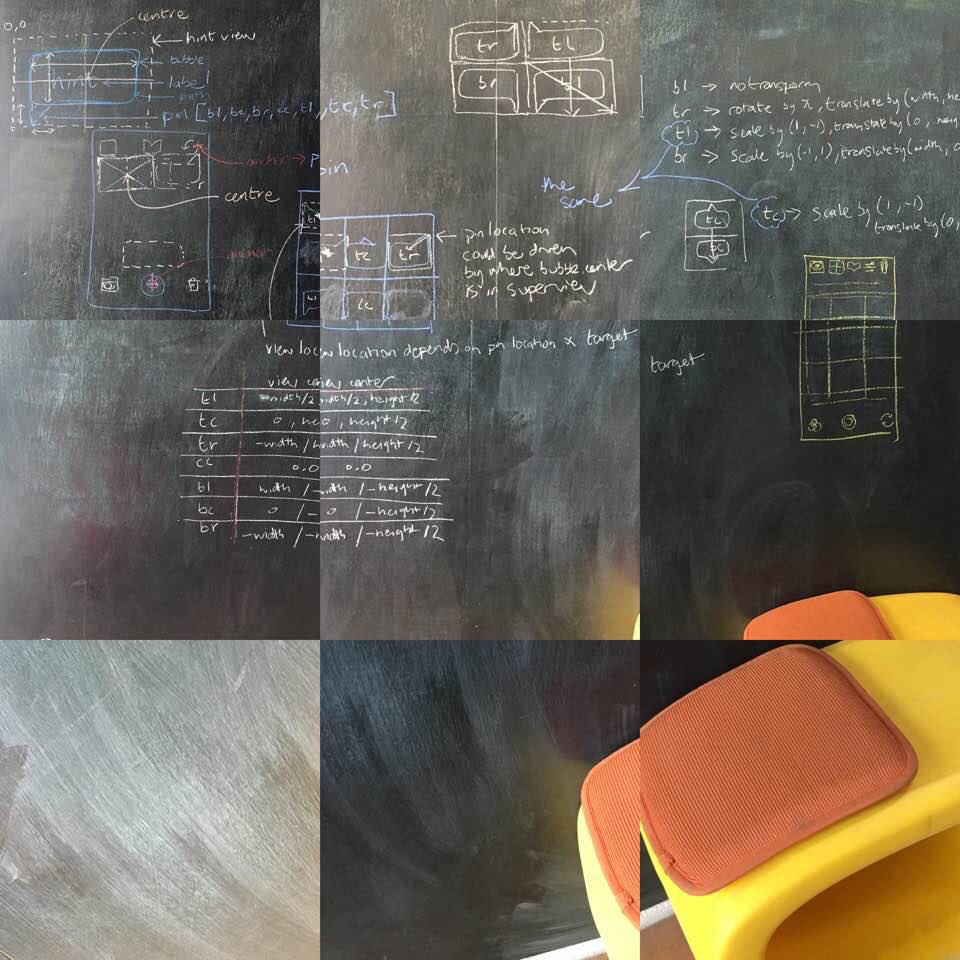 0,0
centre
hint view
bubble
hint
label
pin [bl, bc, br, cc, tl, tc, tr]
anchor → pin
r
centre
tl
bl
tc
tr
cc
pin location
could be driven
by where bubble center
is in superview
tr
tl
br
bl
bl → no transform
tr → rotate by π, translate by (width, he
tl → scale by (1, -1), translate by (0, heig
br → scale by (-1, 1), translate by (width, 0
the
same
tc → scale by (1, -1)
translate by (0,
tc
bc
location depends on pin location x target
target
view center
tl width/2, height/2
tc 0, height/2
tr -width / height/2
cc 0.0 0.0
bl width / -height/2
bc 0 / -height/2
br -width / -height/2